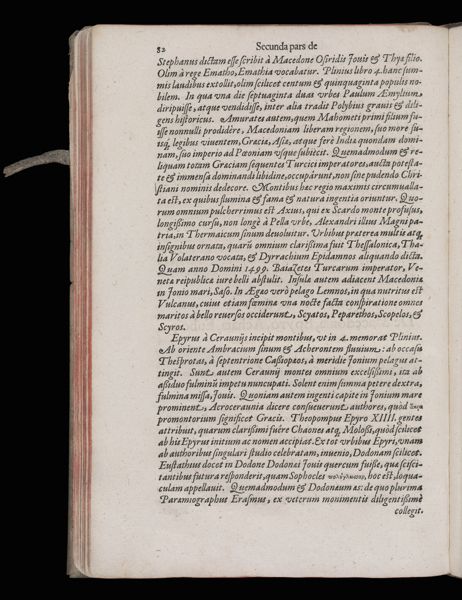 82 Secunda pars de
Stephanus dictam esse scribit à Macedone Osiridis Iouis & Thyæ filio.
Olim à rege Ematho, Emathia vocabatur. Plinius libro 4. hanc sum-
mis laudibus extollit, olim scilicet centum & quinquaginta populis no-
bilem. In qua vna die septuaginta duas vrbes Paulum Æmylium
diripuisse, atque vendidisse, inter alia tradit Polybius grauis & dili-
gens historicus. Amurates autem, quem Mahometi primi filium fu-
isse nonnulli prodidêre, Macedoniam liberam regionem, suo more su-
isq; legibus viuentem, Græcia, Asia, atque ferè India quondam domi-
nam, suo imperio ad Pæoniam vsque subiecit. Quemadmodum & re-
liquam totam Græciam sequentes Turcici imperatores, aucta potesta-
te & immensa dominandi libidine, occupârunt, non sine pudendo Chri-
stiani nominis dedecore. Montibus hæc regio maximis circumualla-
ta est, ex quibus flumina & fama & natura ingentia oriuntur. Quo-
rum omnium pulcherrimus est Axius, qui ex Scardo monte profusus,
longissimo cursu, non longè à Pella vrbe, Alexandri illius Magni pa-
tria, in Thermaicum sinum deuoluitur. Vrbibus præterea multis atq,
insignibus ornata, quarũ omnium clarissima fuit Thessalonica, Tha-
lia Volaterano vocata, & Dyrrachium Epidamnos aliquando dicta.
Quam anno Domini 1499. Baiazetes Turcarum imperator, Ve-
neta reipublicæ iure belli abstulit. Insulæ autem adiacent Macedoniæ
in Ionio mari, Saso. In Ægeo verò pelago Lemnos, in qua nutritus est
Vulcanus, cuius etiam fœminæ vna nocte facta conspiratione omnes
maritos à bello reuersos occiderunt, Scyatos, Peparethos, Scopelos, &
Scyros.
Epyrus à Ceraunijs incipit montibus, vt in 4. memorat Plinius.
Ab oriente Ambracium sinum & Acherontem fluuium: ab occasu
Thesprotas, à septentrione Cassiopæos, à meridie Ionium pelagus at-
tingit. Sunt autem Ceraunij montes omnium excelsissimi, ita ab
assiduo fulminũ impetu nuncupati. Solent enim summa petere dextra,
fulmina missa, Iouis. Quoniam autem ingenti capite in Ionium mare
prominent, Acroceraunia dicere consueuerunt authores, quòd
promontorium significet Græcis. Theopompus Epyro XIIII. gentes
attribuit, quarum clarissimi fuêre Chaones atq, Molossi, quòd scilicet
ab his Epyrus initium ac nomen accipiat. Ex tot vrbibus Epyri, vnam
ab authoribus singulari studio celebratam, inuenio, Dodonam scilicet.
Eustathius docet in Dodone Dodonæi Iouis quercum fuisse, quæ scisci-
tantibus futura responderit, quam Sophocles hoc est, loqua-
culam appellauit. Quemadmodum & Dodonæum æs: de quo plurima
Parœmiographus Erasmus, ex veterum monimentis diligentissimè
collegit.